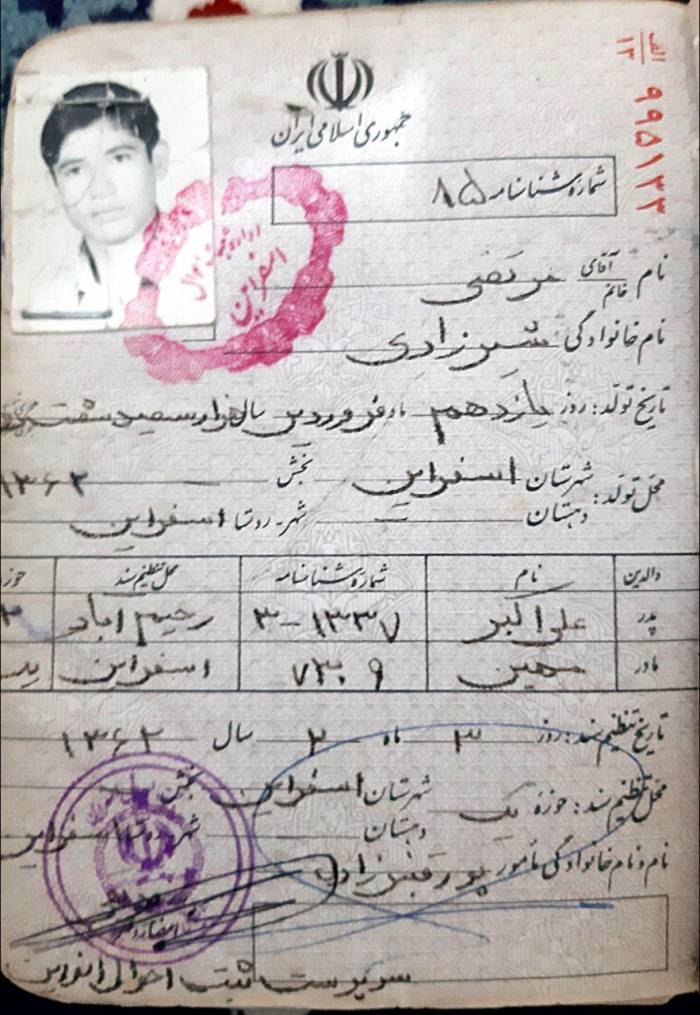 الف
۱۳
۹۹۵۱۳۳
جمهوری اسلامی ایران
شماره شناسنامه ۸۵
نام آقای خانم مرتضی
نام خانوادگی شیرزادی
تاریخ تولد: روز یازدهم ماه فروردین سال هزار و سیصد شصت
محل تولد: شهرستان اسفراین بخش — ۱۳۶۲
دهستان — شهر - روستا اسفراین
والدین نام شماره شناسنامه محل تنظیم سند حوزه
پدر علی اکبر ۱۳۳۷-۳ رحیم آباد ۲
مادر اسفراین
تاریخ تنظیم سند: روز ۳ ماه ۲ سال ۱۳۶۲
محل تنظیم سند: حوزه یک شهرستان اسفراین بخش
دهستان — شهر - روستا اسفراین
نام و نام خانوادگی مأمور
سرپرست ثبت احوال اسفراین